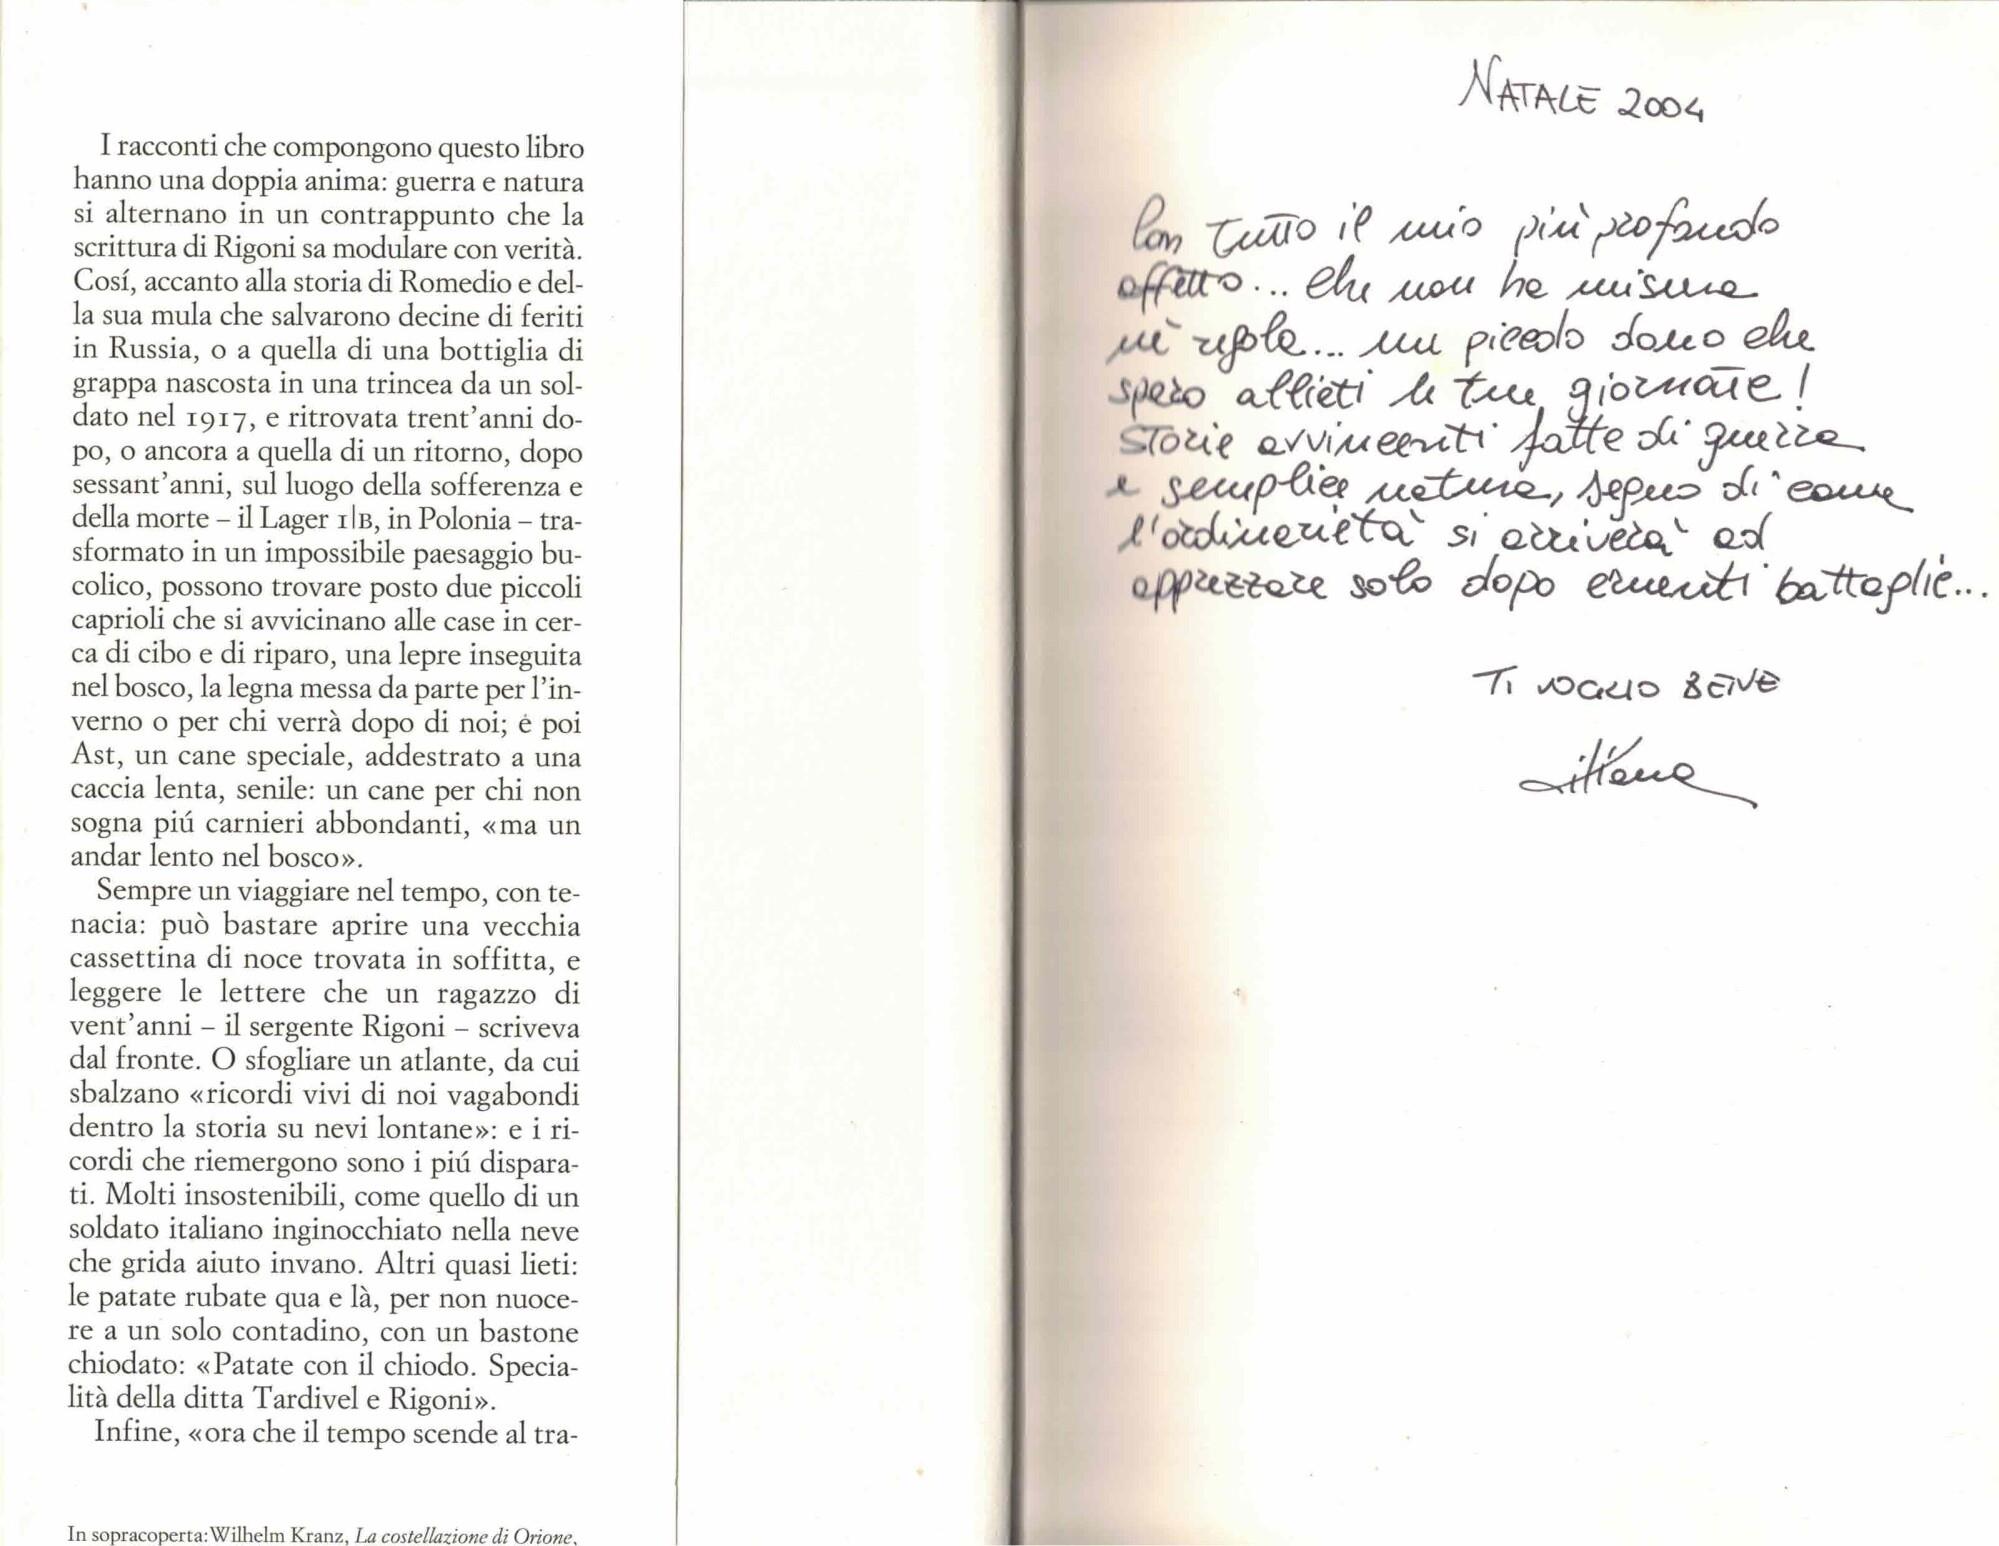 I racconti che compongono questo libro
hanno una doppia anima: guerra e natura
si alternano in un contrappunto che la
scrittura di Rigoni sa modulare con verità.
Cosí, accanto alla storia di Romedio e del-
la sua mula che salvarono decine di feriti
in Russia, o a quella di una bottiglia di
grappa nascosta in una trincea da un sol-
dato nel 1917, e ritrovata trent'anni do-
po, o ancora a quella di un ritorno, dopo
sessant'anni, sul luogo della sofferenza e
della morte – il Lager I|B, in Polonia – tra-
sformato in un impossibile paesaggio bu-
colico, possono trovare posto due piccoli
caprioli che si avvicinano alle case in cer-
ca di cibo e di riparo, una lepre inseguita
nel bosco, la legna messa da parte per l'in-
verno o per chi verrà dopo di noi; e poi
Ast, un cane speciale, addestrato a una
caccia lenta, senile: un cane per chi non
sogna piú carnieri abbondanti, «ma un
andar lento nel bosco».
Sempre un viaggiare nel tempo, con te-
nacia: può bastare aprire una vecchia
cassettina di noce trovata in soffitta, e
leggere le lettere che un ragazzo di
vent'anni – il sergente Rigoni – scriveva
dal fronte. O sfogliare un atlante, da cui
sbalzano «ricordi vivi di noi vagabondi
dentro la storia su nevi lontane»: e i ri-
cordi che riemergono sono i piú dispara-
ti. Molti insostenibili, come quello di un
soldato italiano inginocchiato nella neve
che grida aiuto invano. Altri quasi lieti:
le patate rubate qua e là, per non nuoce-
re a un solo contadino, con un bastone
chiodato: «Patate con il chiodo. Specia-
lità della ditta Tardivel e Rigoni».
Infine, «ora che il tempo scende al tra-
In sopracoperta: Wilhelm Kranz, La costellazione di Orione,
NATALE 2004
Con tutto il mio più profondo
affetto... che non ha misura
nè regola... un piccolo dono che
spero allieti le tue giornate!
Storie avvincenti fatte di guerra
e semplice natura, segno di come
l'ordinarietà si arriverà ad
apprezzare solo dopo cruenti battaglie...
TI VOGLIO BENE